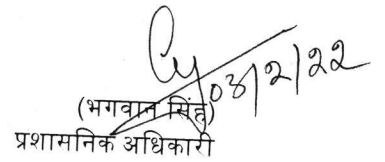 03/2/22
(भगवान सिंह)
प्रशासनिक अधिकारी